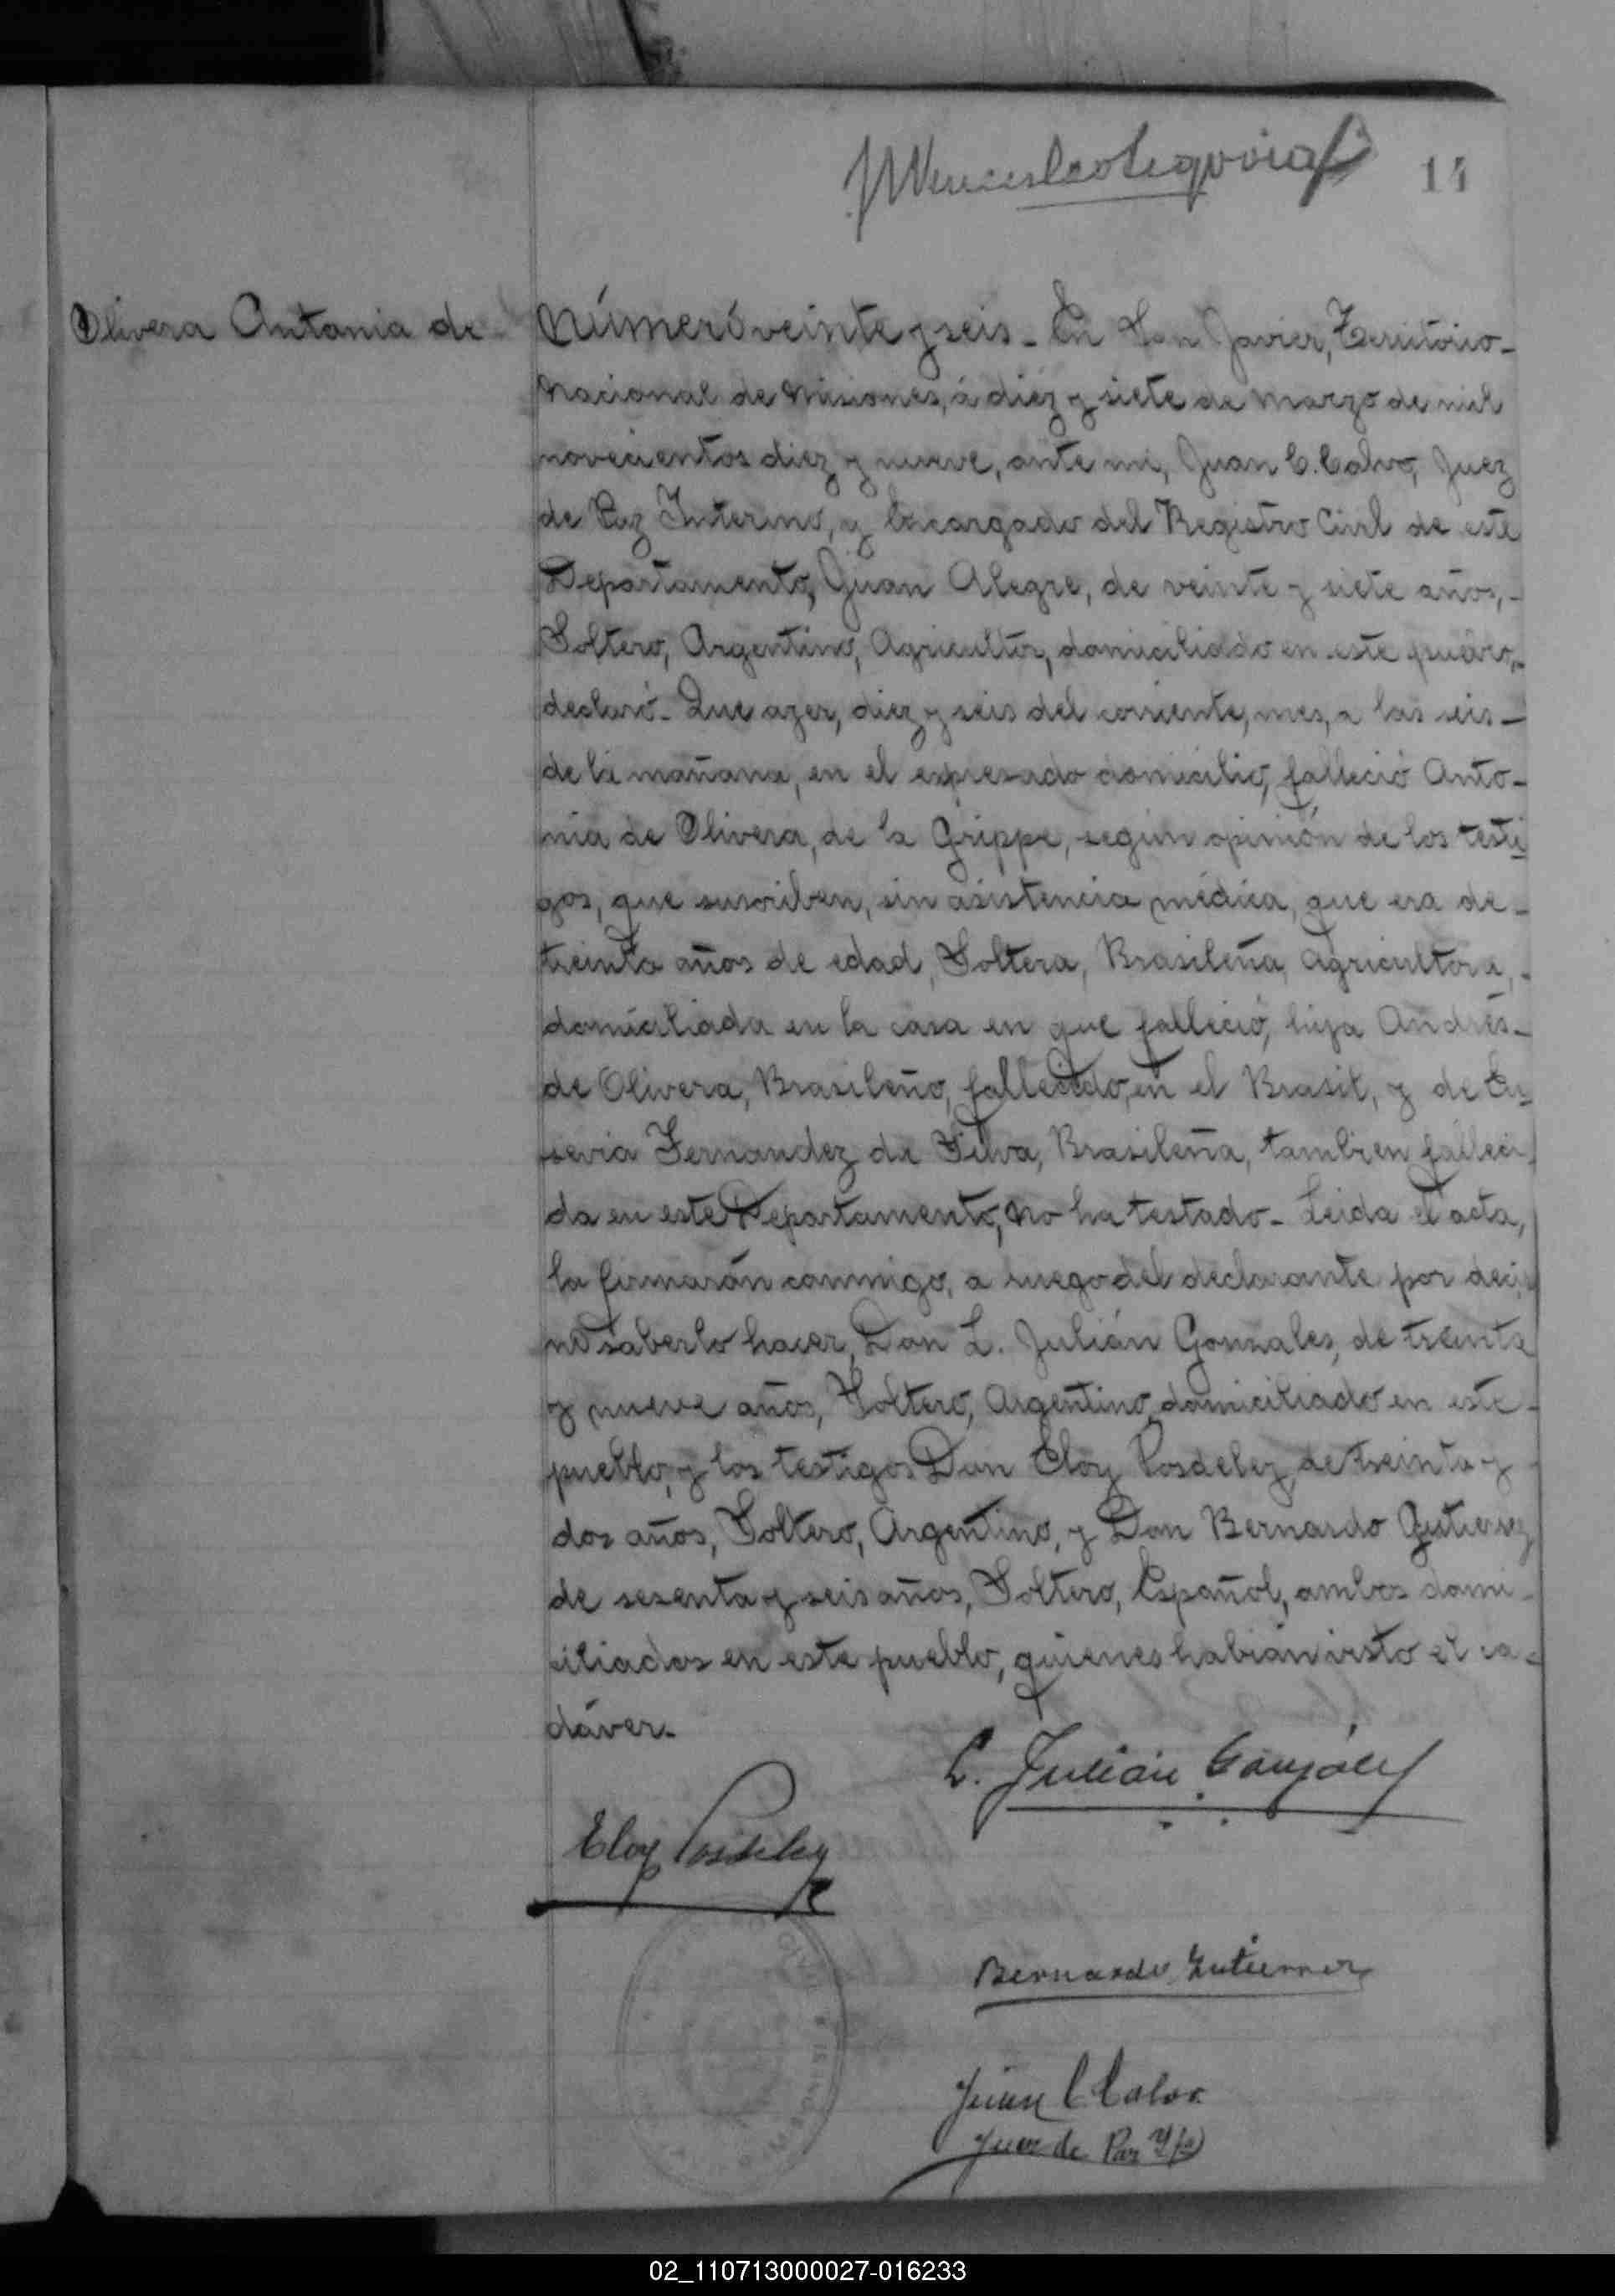 Wenceslao Segovia
14
Olivera Antania de
Número veinte y seis - En San Javier, Territorio-
Nacional de Misiones, á diéz y siete de Marzo de mil
novecientos diez y nueve, ante mi, Juan C. Calvo, Juez
de Paz Interino, y Encargado del Registro Civil de este
Departamento, Juan Alegre, de veinte y siete años,-
Soltero, Argentino, Agricultor, domiciliado en este
declaró- Que ayer, diez y seis del corriente, mes, a las seis-
de la mañana, en el expresado domicilio, falleció Anto-
nia de Olivera, de la Grippe, según opinión de los testi
gos, que suscriben, sin asistencia médica, que era de-
treinta años de edad, Soltera, Brasileña, Agricultora,-
domiciliada en la casa en que falleció, hija Andrés-
de Olivera, Brasileño, fallecido, en el Brasil, y de Eu
sevia Fernandez da Silva, Brasileña, tambien falleci
da en este Departamento, no ha testado- Leida el acta,
la firmarón conmigo, a ruego del declarante por decir
no saberlo hacer, Don L. Julián Gonzales, de treinta
y nueve años, Soltero, Argentino, domiciliado en este-
pueblo, y los testigos Don Eloy Posdeley, de treinta y
dos años, Soltero, Argentino, y Don Bernardo Gutierrez
de sesenta y seis años, Soltero, Español, ambos domi-
siliados en este pueblo, quienes habián visto el ca-
dáver-
L. Julián González
Eloy Posdeley
Bernardo Gutierrez
Juan C Calvo
Juez de Paz
02_110713000027-016233